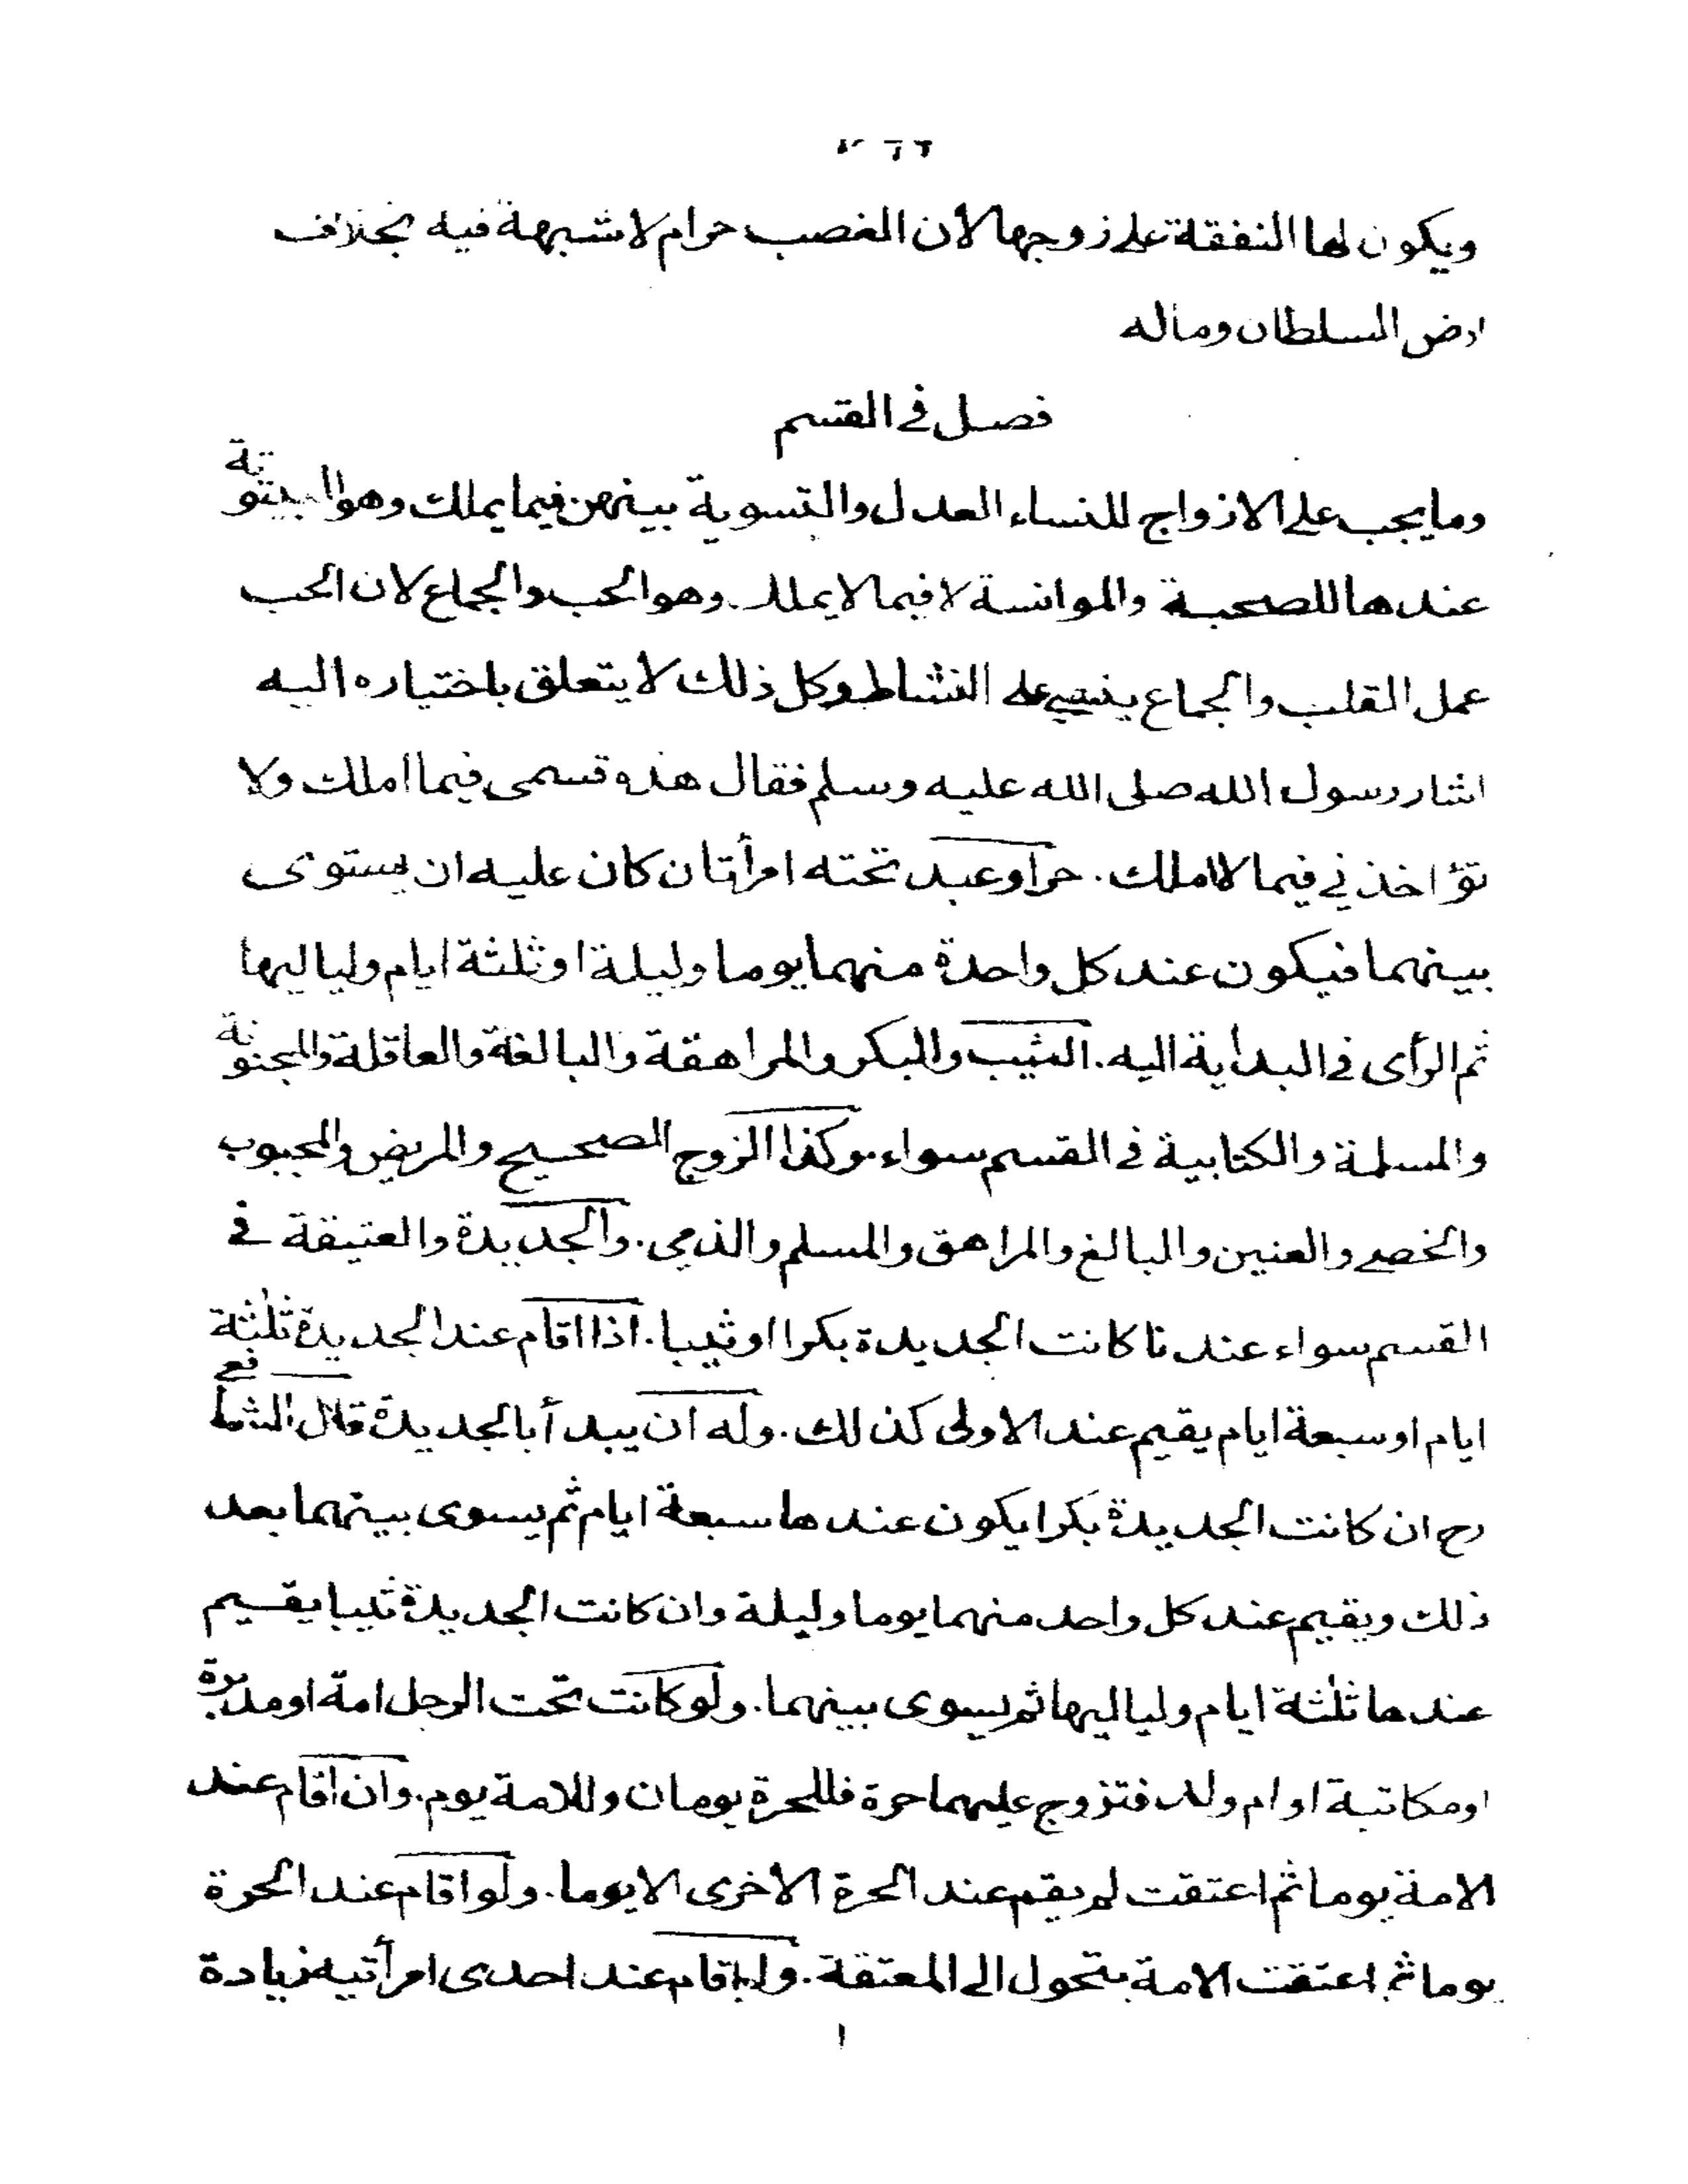 ويكون لها النفقة على زوجها لأن الغصب حرام لا شبهة فيه بخلاف
ارض السلطان وماله
فصل في القسم
وما يجب على الازواج للنساء العدل والتسوية بينهن فيما يملك وهو البيتوتة
عندها للصحبة والموانسة لا فيما لا يملك وهو الحب والجماع لان الحب
عمل القلب والجماع ينبني على النشاط وكل ذلك لا يتعلق باختياره اليه
اشار رسول الله صلى الله عليه وسلم فقال هذه قسمى فيما املك ولا
تؤاخذني فيما لا املك. حر أو عبد تحته امرأتان كان عليه ان يستوى
بينهما فيكون عند كل واحدة منهما يوما وليلة او ثلثة ايام ولياليها
ثم الرأى في البداية اليه. الثيب والبكر والمراهقة والبالغة والعاقلة والمجنونة
والمسلمة والكتابية في القسم سواء. وكذا الزوج الصحيح والمريض والمجبوب
والخصى والعنين والبالغ والمراهق والمسلم والذمي. والجديدة والعتيقة في
القسم سواء عندنا كانت الجديدة بكرا او ثيبا. اذا اقام عند الجديدة ثلثة
ايام او سبعة ايام يقيم عند الاولى كذلك. وله ان يبدأ بالجديدة قال الشافعي
رح ان كانت الجديدة بكرا يكون عندها سبعة ايام ثم يسوى بينهما بعد
ذلك ويقيم عند كل واحد منهما يوما وليلة وان كانت الجديدة ثيبا يقيم
عندها ثلثة ايام ولياليها ثم يسوى بينهما. ولو كانت تحت الرجل امة او مدبرة
او مكاتبة او ام ولد فتزوج عليهما حرة فللحرة يومان وللامة يوم. وان اقام عند
الامة يوما ثم اعتقت لم يقم عند الحرة الاخرى الا يوما. ولو اقام عند الحرة
يوما ثم اعتقت الامة يتحول الى المعتقة. ولو اقام عند احدى امرأتيه زيادة